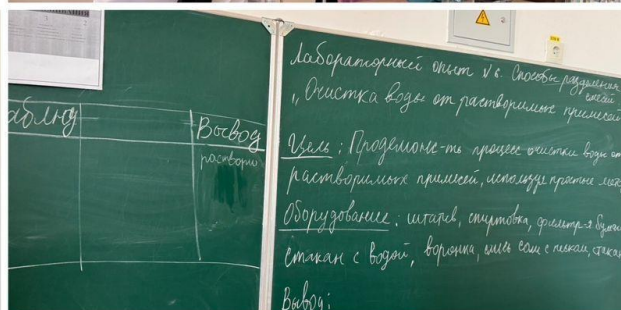 аблюд
Вывод
раствори
Лабораторный опыт №6. Способы разделения
смесей
„Очистка воды от растворимых примесей
Цель: Продемонс-ть процесс очистки воды от
растворимых примесей, используя простые мет
Оборудование: штатив, спиртовка, фильтр-я бумаг
стакан с водой, воронка, смесь соли с песком, стака
Вывод: